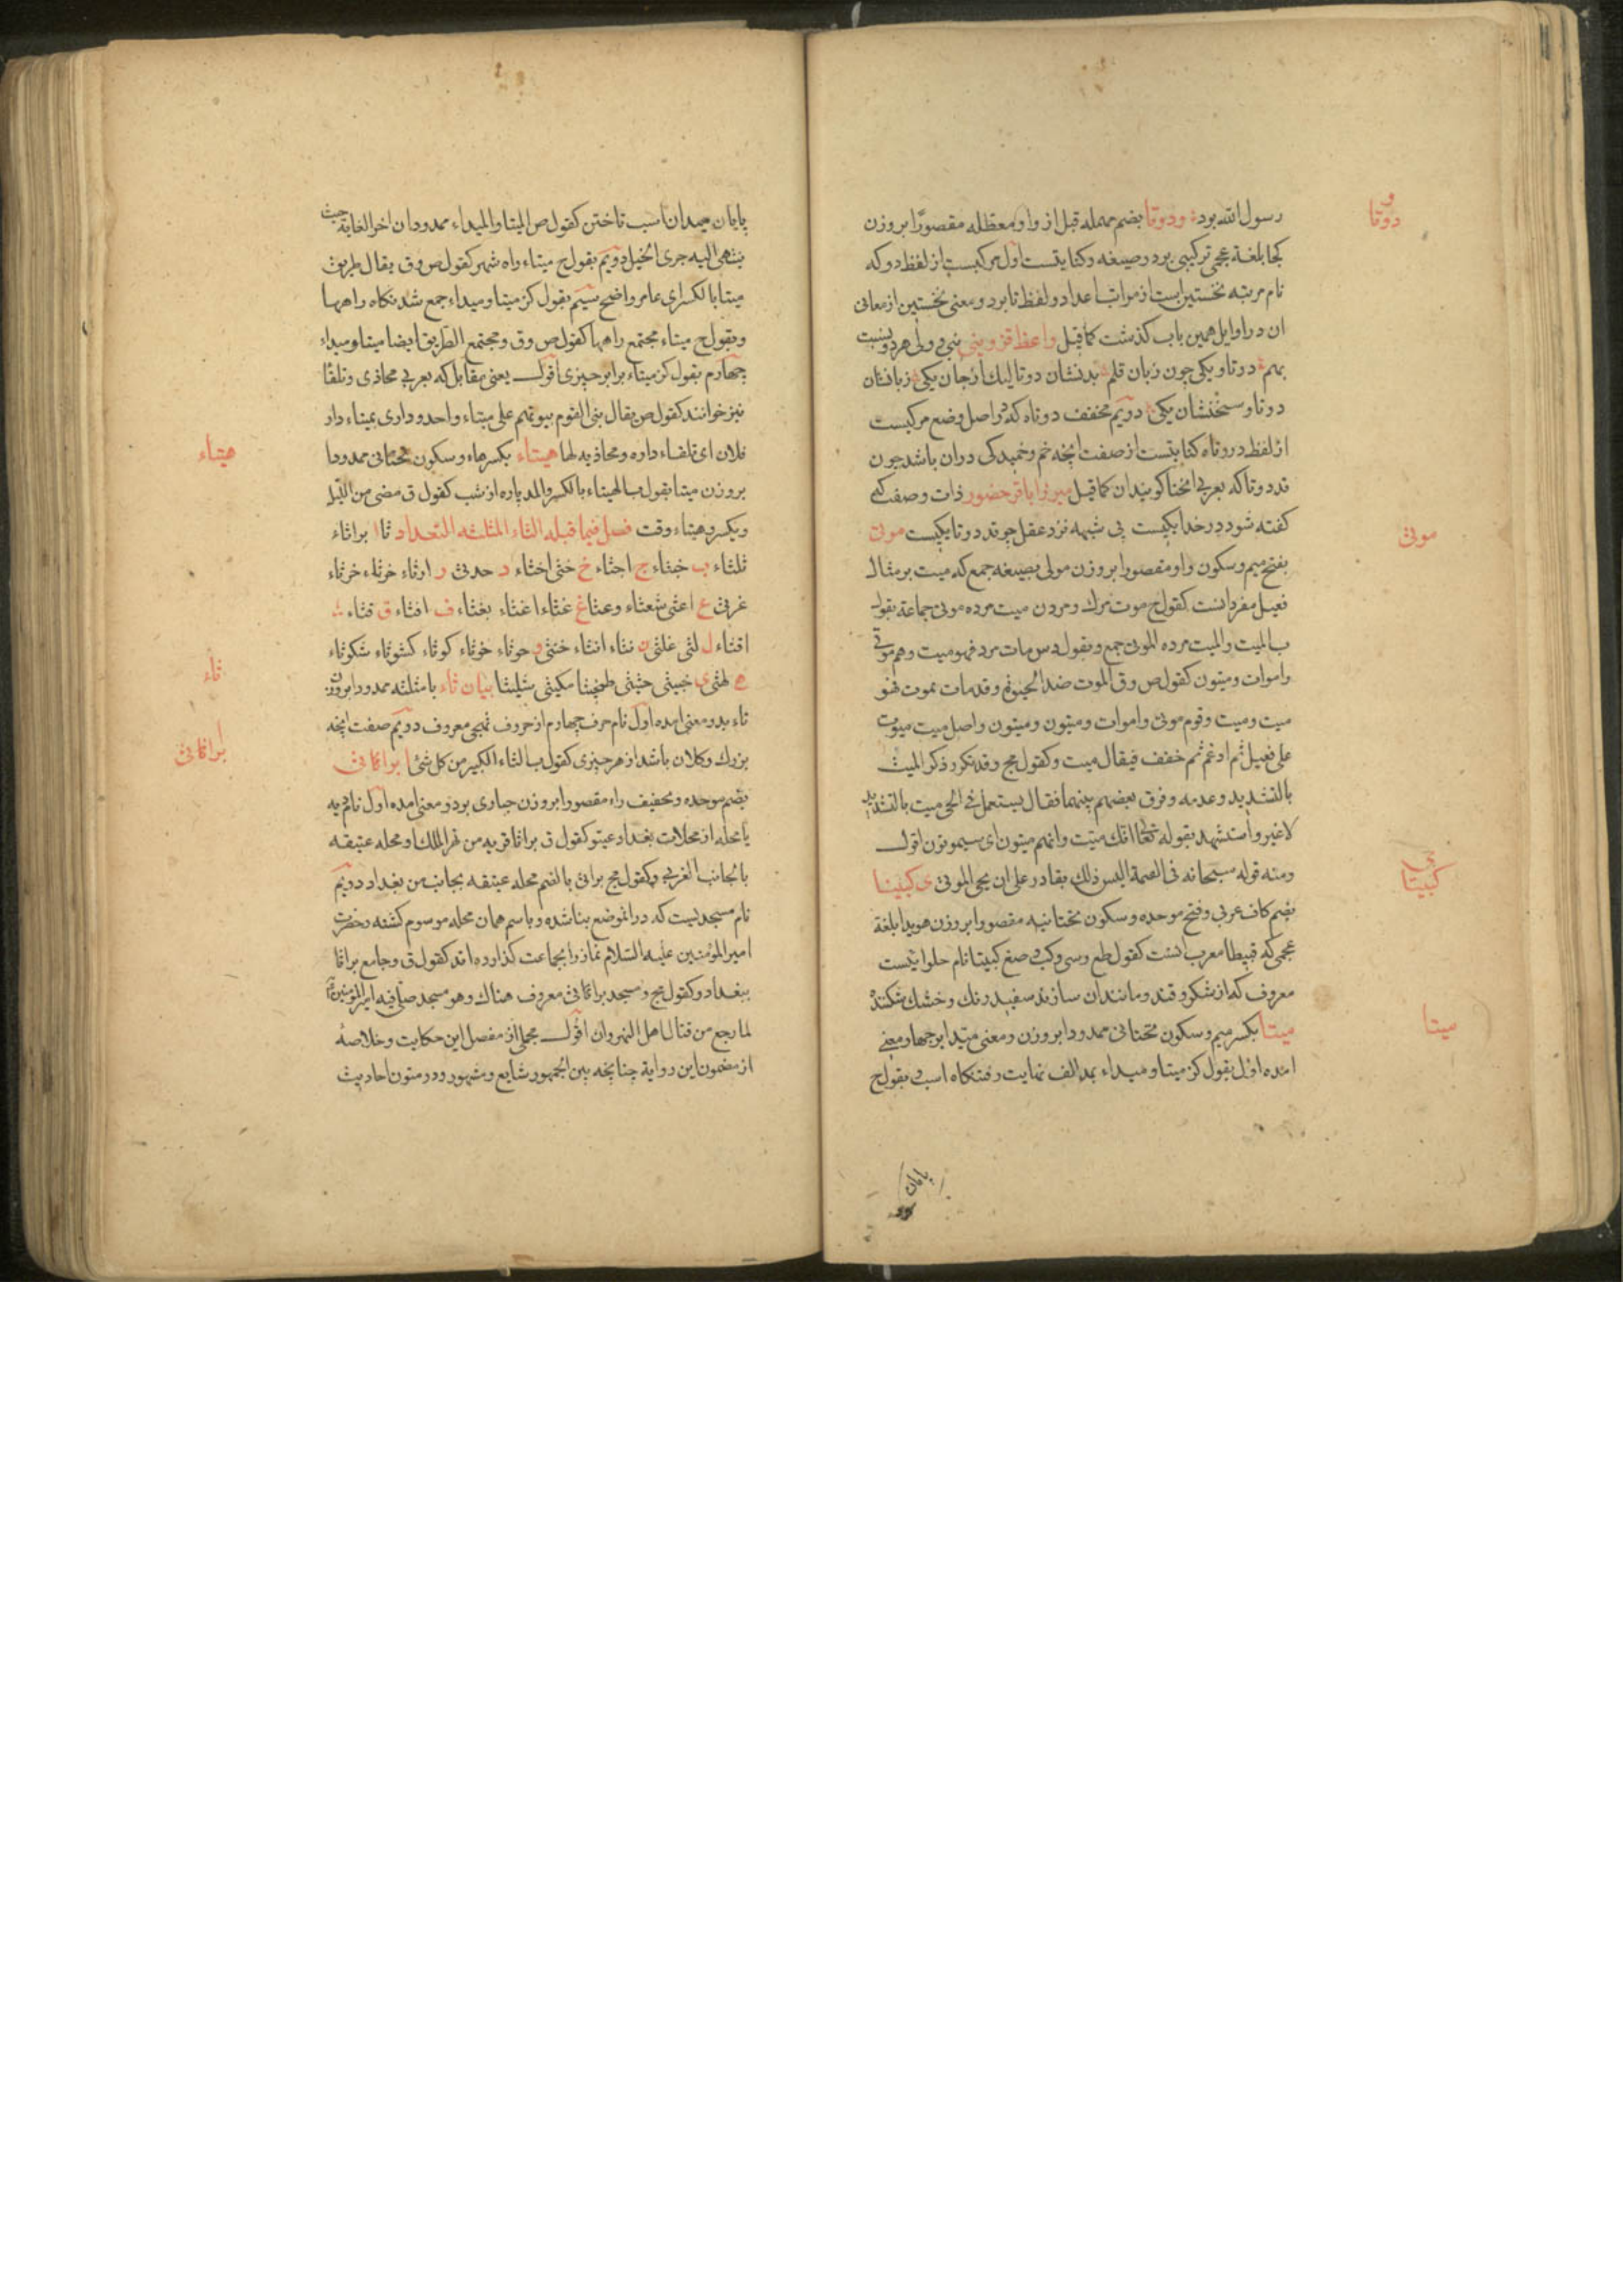 و
دوتا
رسول الله بود و دوتا بضم مهمله قبل از واو معظله مقصورًا بر وزن
کجا بلغة عجمی ترکیبی بود و صیغه و کنایتست اول مرکبست از لفظ دو که
نام مرتبه نخستین است از مراتب اعداد و لفظ تا بود و معنی نخستین از معانی
ان در اوایل همین باب کذشت کما قیل واعظ قزوینی ولی هر دو
بهم دوتا و یکی چون زبان قلم بدنشان دوتا لیک از جان یکی زبانشان
دوتا و سخنشان یکی دویم مخفف دوتاه که در اصل وضع مرکبست
از لفظ دو و تاه کنایتست از صفت انچه خم و خمیدکی دران باشد چون
قد دوتا که بعربی انحنا کویندان کما قیل میرزا باقر حضور ذات و صفت کی
کفته شود در خدا یکیست بی شبهه نزد عقل چو قد دوتا یکیست موتی
موتی
بفتح میم و سکون واو مقصورا بر وزن مولی بصیغه جمع که میت بر مثال
فعیل مفرد انست کقول ح موت مرک و مردن میت مرده موتی جماعة بقول
ب المیت والمیت مرده الموتی جمع و بقول دس مات مرد فهو میت و هم موتی
و اموات و میتون کقول ص و ق الموت ضد الحیوة و قد مات یموت فهو
میت و میت و قوم موتی و اموات و میتون و میتون و اصل میت میوت
علی فعیل ثم ادغم ثم خفف فیقال میت و کقول مج و قد تکرر ذکر المیت
بالتشدید و عدمه و فرق بعضهم بینهما فقال یستعمل فی الحی میت بالتشدید
لا غیر و استشهد بقوله تعالی انک میت و انهم میتون ای سیموتون اقول
و منه قوله سبحانه فی القیمة الیس ذلک بقادر علی ان یحی الموتی ی کبیتا
ی
کبیتا
بضم کاف عربی و فتح موحده و سکون تحتانیه مقصورا بر وزن هویدا بلغة
عجمی که قبیطا معرب انست کقول طع و سی و کب و صغ کبیتا نام حلوایست
معروف که از شکر و قند و مانند ان سازند سفید رنک و خشک شکننده
میتا
میتا بکسر میم و سکون تحتانی ممدودا بر وزن و معنی میدا بر چهار معنی
امده اول بقول کز میتا و میداء بمد الف نهایت رفتنکاه اسب و بقول ح
پایان
پایان میدان اسب تاختن کقول ص المیتا و المیداء ممدودان اخر الغایة حیث
ینتهی الیه جری الخیل دویم بقول ح میتاء راه شهر کقول ص و ق یقال طریق
میتا بالکسر ای عامر واضح سیم بقول کز میتا و میداء جمع شدنکاه راهها
و بقول ح میتاء مجتمع راهها کقول ص و ق و مجتمع الطریق ایضا میتا و میداء
چهارم بقول کز میتاء برابر چیزی اقول یعنی مقابل که بعربی محاذی و تلقا
نیز خوانند کقول ص یقال بنی القوم بیوتهم علی میتاء واحد و داری بمیتاء دار
هیتاء
فلان ای تلقاء داره و محاذیه لها هیتاء بکسر هاء و سکون تحتانی ممدودا
بر وزن میتا بقول ب الهیتاء بالکسر والمد پاره از شب کقول ق مضی من اللیل
و یکسر و هیتاء وقت فصل فیما قبله الثاء المثلثه التعداد ثا ا براثاء
ثلثاء ب خبثاء ج اجثاء خ خنثی اخثاء د حدثی ر ارثاء خرثاء خرثاء
غرثی ع اعثی شعثاء و عثا غ غثاء اغثاء بغثاء ف افثاء ق قثاء
اقثاء ل لثی غلثی ن نثاء انثاء خنثی و حوثاء خوثاء کوثاء کشوثاء شکوثاء
ثاء
ه لهثی ی خبیثی حثیثی طخیثا مکیثی بیان ثاء با مثلثه ممدودا بر وزن
تاء بدو معنی امده اول نام حرف چهارم از حروف تهجی معروف دویم صفت انچه
براثائی
بزرک و کلان باشد از هر چیزی کقول ب الثاء الکبیر من کل شئ ا براثائی
بضم موحده و تخفیف راء مقصورا بر وزن حباری بدو معنی امده اول نام قریه
یا محله از محلات بغداد عیتو کقول ق براثا قریه من نهر الملک او محله عتیقه
بالجانب الغربی و کقول مج براثی بالضم محله عتیقه بجانب من بغداد دویم
نام مسجدیست که در انموضع بنا شده و باسم همان محله موسوم کشته و حضرت
امیر المؤمنین علیه السلام نماز را بجماعت کذاورده اند کقول ق و جامع براثا
ببغداد و کقول مج و مسجد براثائی معروف هناک و هو مسجد صلی فیه امیر المؤمنین
لما رجع من قتال اهل النهروان اقول مجملی از مفصل این حکایت و خلاصه
از مضمون این روایة چنانچه بین الجمهور شایع و مشهور و در متون احادیث